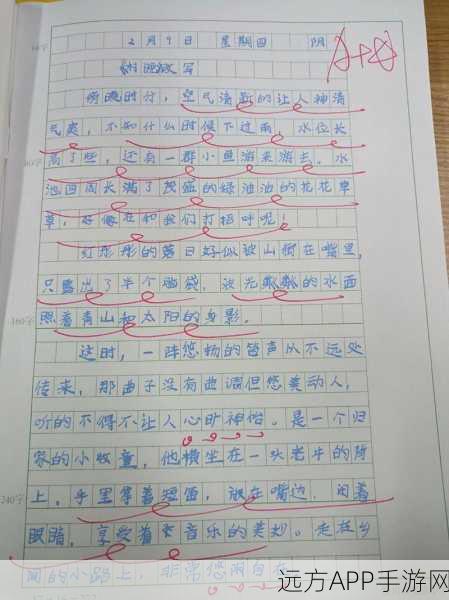 2月9日 星期四 阴
《村晚》改写
傍晚时分，空气清新的让人神清
气爽，不知什么时候下过雨，水位长
高了些，还有一群小鱼游来游去，水
池四周长满了茂盛的绿油油的花花草
草，好像在和我们打招呼呢！
红彤彤的落日好似被山衔在嘴里，
只露出了半个脑袋，波光粼粼的水面
照着青山和太阳的身影。
这时，一阵悠扬的笛声从不远处
传来，那曲子没有曲调但悠美动人，
听的不得不让人心旷神怡。是一个归
家的小牧童，他横坐在一头老牛的背
上，手里拿着短笛，放在嘴边，闭着
眼睛，享受着音乐的美妙。走在乡
间的小路上，非常悠闲自在
160字
240字
A+
远方APP手游网